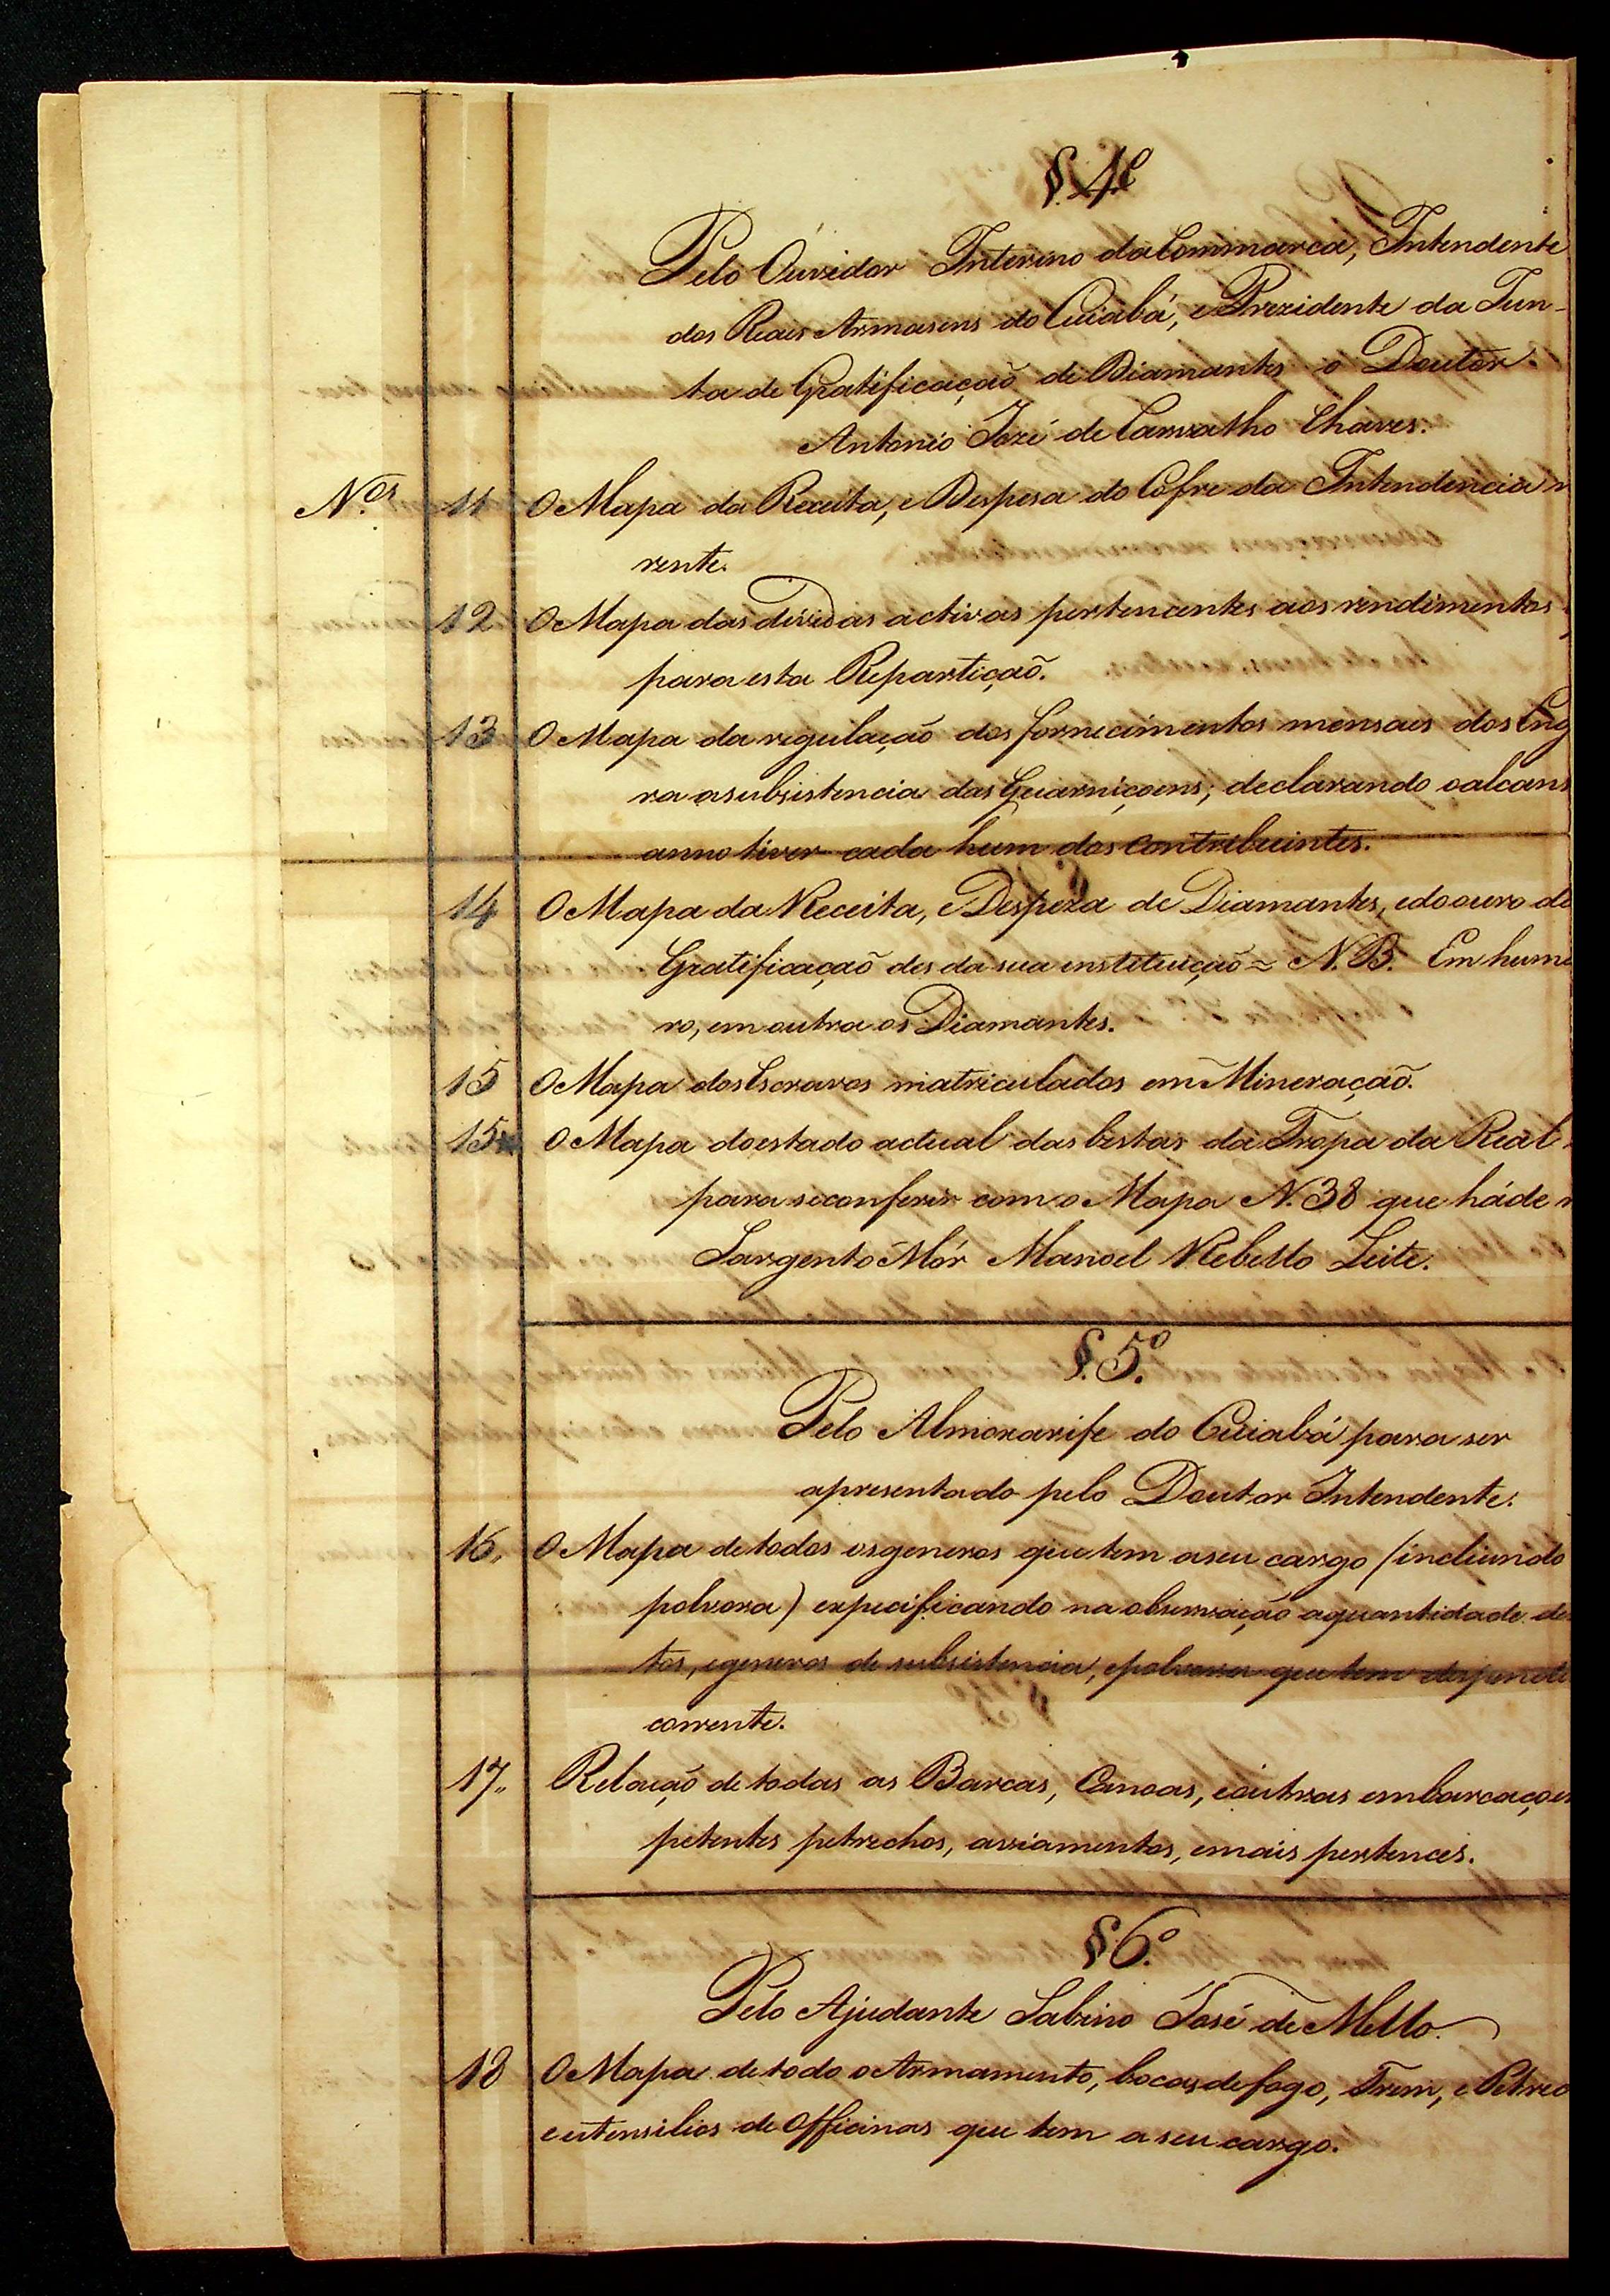 §. 4º
Pelo Ouvidor Interino da Commarca, Intendente
dos Reais Armasens do Cuiabá, e Prezidente da Jun-
ta de Gratificaçaõ de Diamantes o Doutor
Antonio Jozé de Carvalho Chaves.
N.os 11 O Mapa da Receita, e Despesa do Cofre da Intendencia
rente.
12 O Mapa das dividas activas pertencentes aos rendimentos
para esta Repartiçaõ.
13 O Mapa da regulação dos fornecimentos mensaes dos Eng
ra a subsistencia das Guarniçoens; declarando o alcans
anno tiver cada hum dos contribuintes.
14 O Mapa da Receita, e Despeza de Diamantes, e do ouro de
Gratificaçaõ des da sua instituição = N.B. Em huma
ro, em outra os Diamantes.
15 O Mapa dos Escravos matriculados em Mineraçaõ.
15* O Mapa do estado actual das bestas da Tropa da Real
para se conferir com o Mapa N. 38 que há de
Sargento Mór Manoel Rebello Leite.
§. 5º
Pelo Almoxarife do Cuiabá para ser
apresentado pelo Doutor Intendente.
16, O Mapa de todos os generos que tem a seu cargo (incluindo
polvora) expecificando na observação a quantidade de
tos, e generos de subsistencia, e polvora que tem despendi
corrente.
17,, Relação de todas as Barcas, Canoas, e outras embarcaçoes
petentes petrechos, aviamentos, e mais pertences.
§ 6º
Pelo Ajudante Sabino José de Mello.
18 O Mapa de todo o Armamento, bocas de fogo, Trem, e Petrec
e utensilios de Officinas que tem a seu cargo.